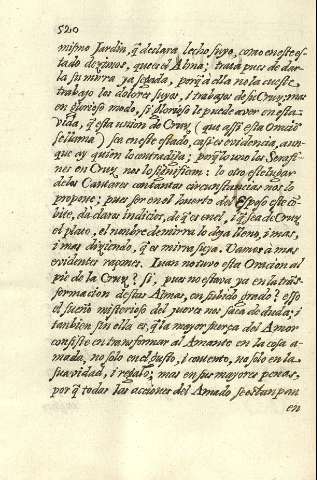 520
mismo Jardin, q̃ declara lecho suyo, como en este es-
tado deximos, que es el Alma; trata pues de dar-
la su mirra ya segada, porq̃ a ella no la cueste
trabajo los dolores suyos, i trabajos de su Cruz; mas
en glorioso modo, si glorioso le puede aver en esta
vida, q̃ esta union de Cruz (que assi esta Oracion
se llama) sea en este estado, casi es evidencia, aun-
que ay quien lo contradiga; porq̃ lo uno los Serafi-
nes en Cruz nos lo significan: lo otro este lugar
de los Cantares con tantas circunstancias nos lo
propone; pues ser en el huerto del Esposo este cõ-
bite, dà claros indicios, de q̃ es en el, i q̃ sea de Cruz
el plato, el nombre de mirra lo deja lleno, i mas,
i mas diziendo, q̃ es mirra suya. Vamos à mas
evidentes razones. Juan no tuvo esta Oracion al
pie de la Cruz? si, pues no estava ya en la trãs-
formacion destas Almas, en subido grado? esso
el sueño misterioso del jueves nos saca de duda; i
tanbien sin ella es, q̃ la mayor fuerça del Amor
consiste en transformar al Amante en la cosa a-
mada, no solo en el gusto, i contento, no solo en la
suavidad, i regalo; mas en sus mayores penas,
por q̃ todas las acciones del Amado se estanpan
en